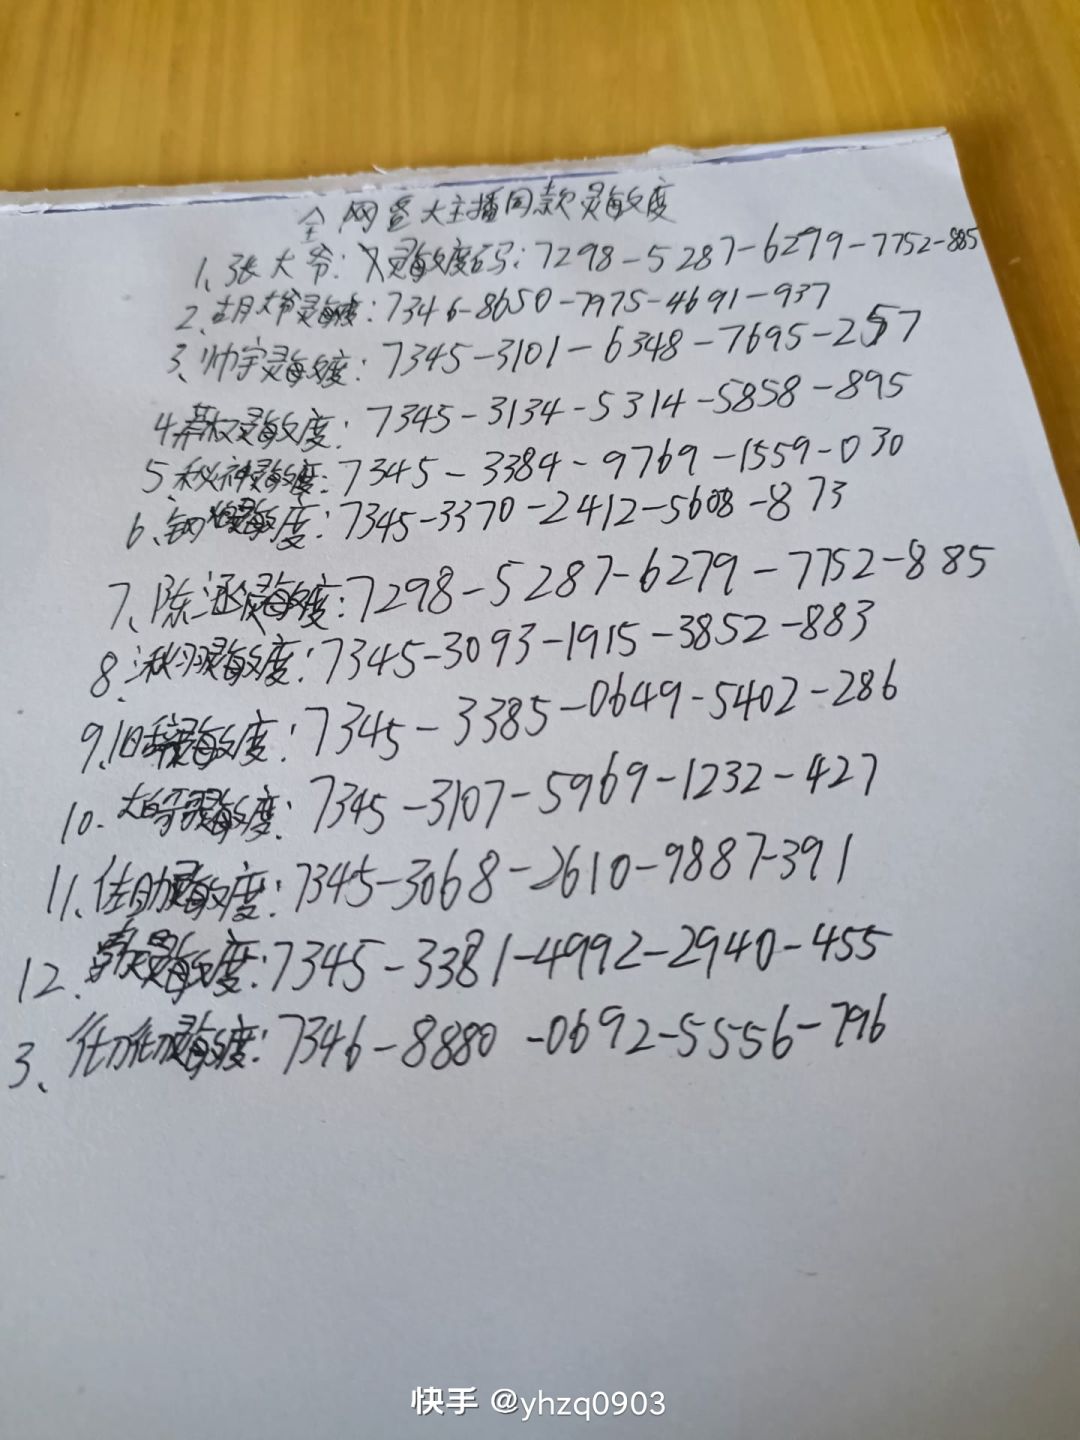 全网各大主播同款灵敏度
1、张大爷:灵敏度码:7298-5287-6279-7752-885
2、胡大爷灵敏度:7346-8650-7975-4691-937
3、帅宇灵敏度:7345-3101-6348-7695-257
4、灵敏度:7345-3134-5314-5858-895
5秘神灵敏度:7345-3384-9769-1559-030
6、灵敏度:7345-3370-2412-5608-873
7、陈灵敏度:7298-5287-6279-7752-885
8、灵敏度:7345-3093-1915-3852-883
9、旧灵敏度:7345-3385-0649-5402-286
10.灵敏度:7345-3107-5969-1232-427
11、佳助灵敏度:7345-3068-2610-9887-391
12、灵敏度:7345-3381-4992-2940-455
3、灵敏度:7346-8880-0692-5556-796
快手 @yhzq0903